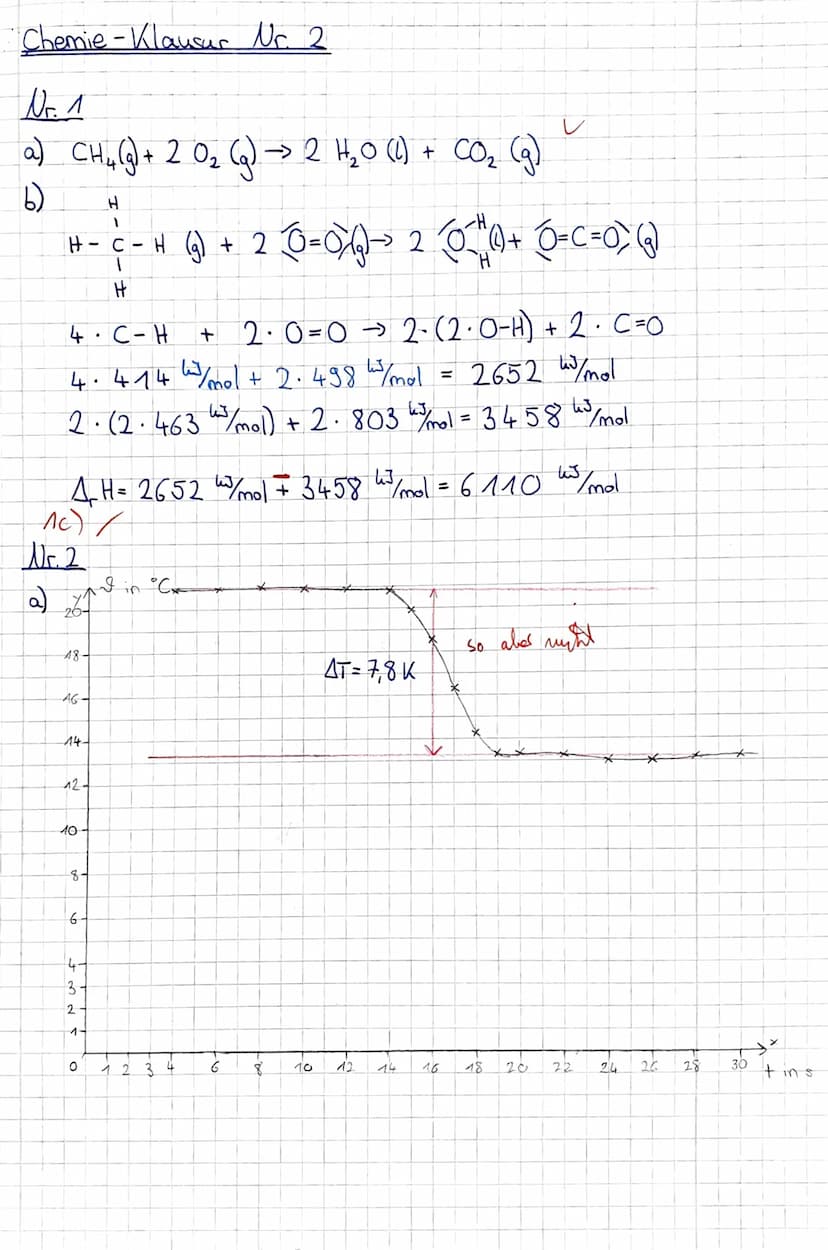 Chemie-Klausur Nr. 2
Nr. 1
a) CH₄(g) + 2 O₂ (g) → 2 H₂O (l) + CO₂ (g) ✓
b)
H
H - C - H (g) + 2 O=O (g) → 2 O-H (l) + O=C=O (g)
H
H
4 · C-H + 2 · O=O → 2 · (2 · O-H) + 2 · C=O
4 · 414 kJ/mol + 2 · 498 kJ/mol = 2652 kJ/mol
2 · (2 · 463 kJ/mol) + 2 · 803 kJ/mol = 3458 kJ/mol
ΔᵣH = 2652 kJ/mol + 3458 kJ/mol = 6110 kJ/mol
1c) /
Nr. 2
a) y ϑ in °C
20
18
so aber nicht
ΔT = 7,8 K
16
14
12
10
8
6
4
3
2
1
0 1 2 3 4 6 8 10 12 14 16 18 20 22 24 26 28 30 x
t in s